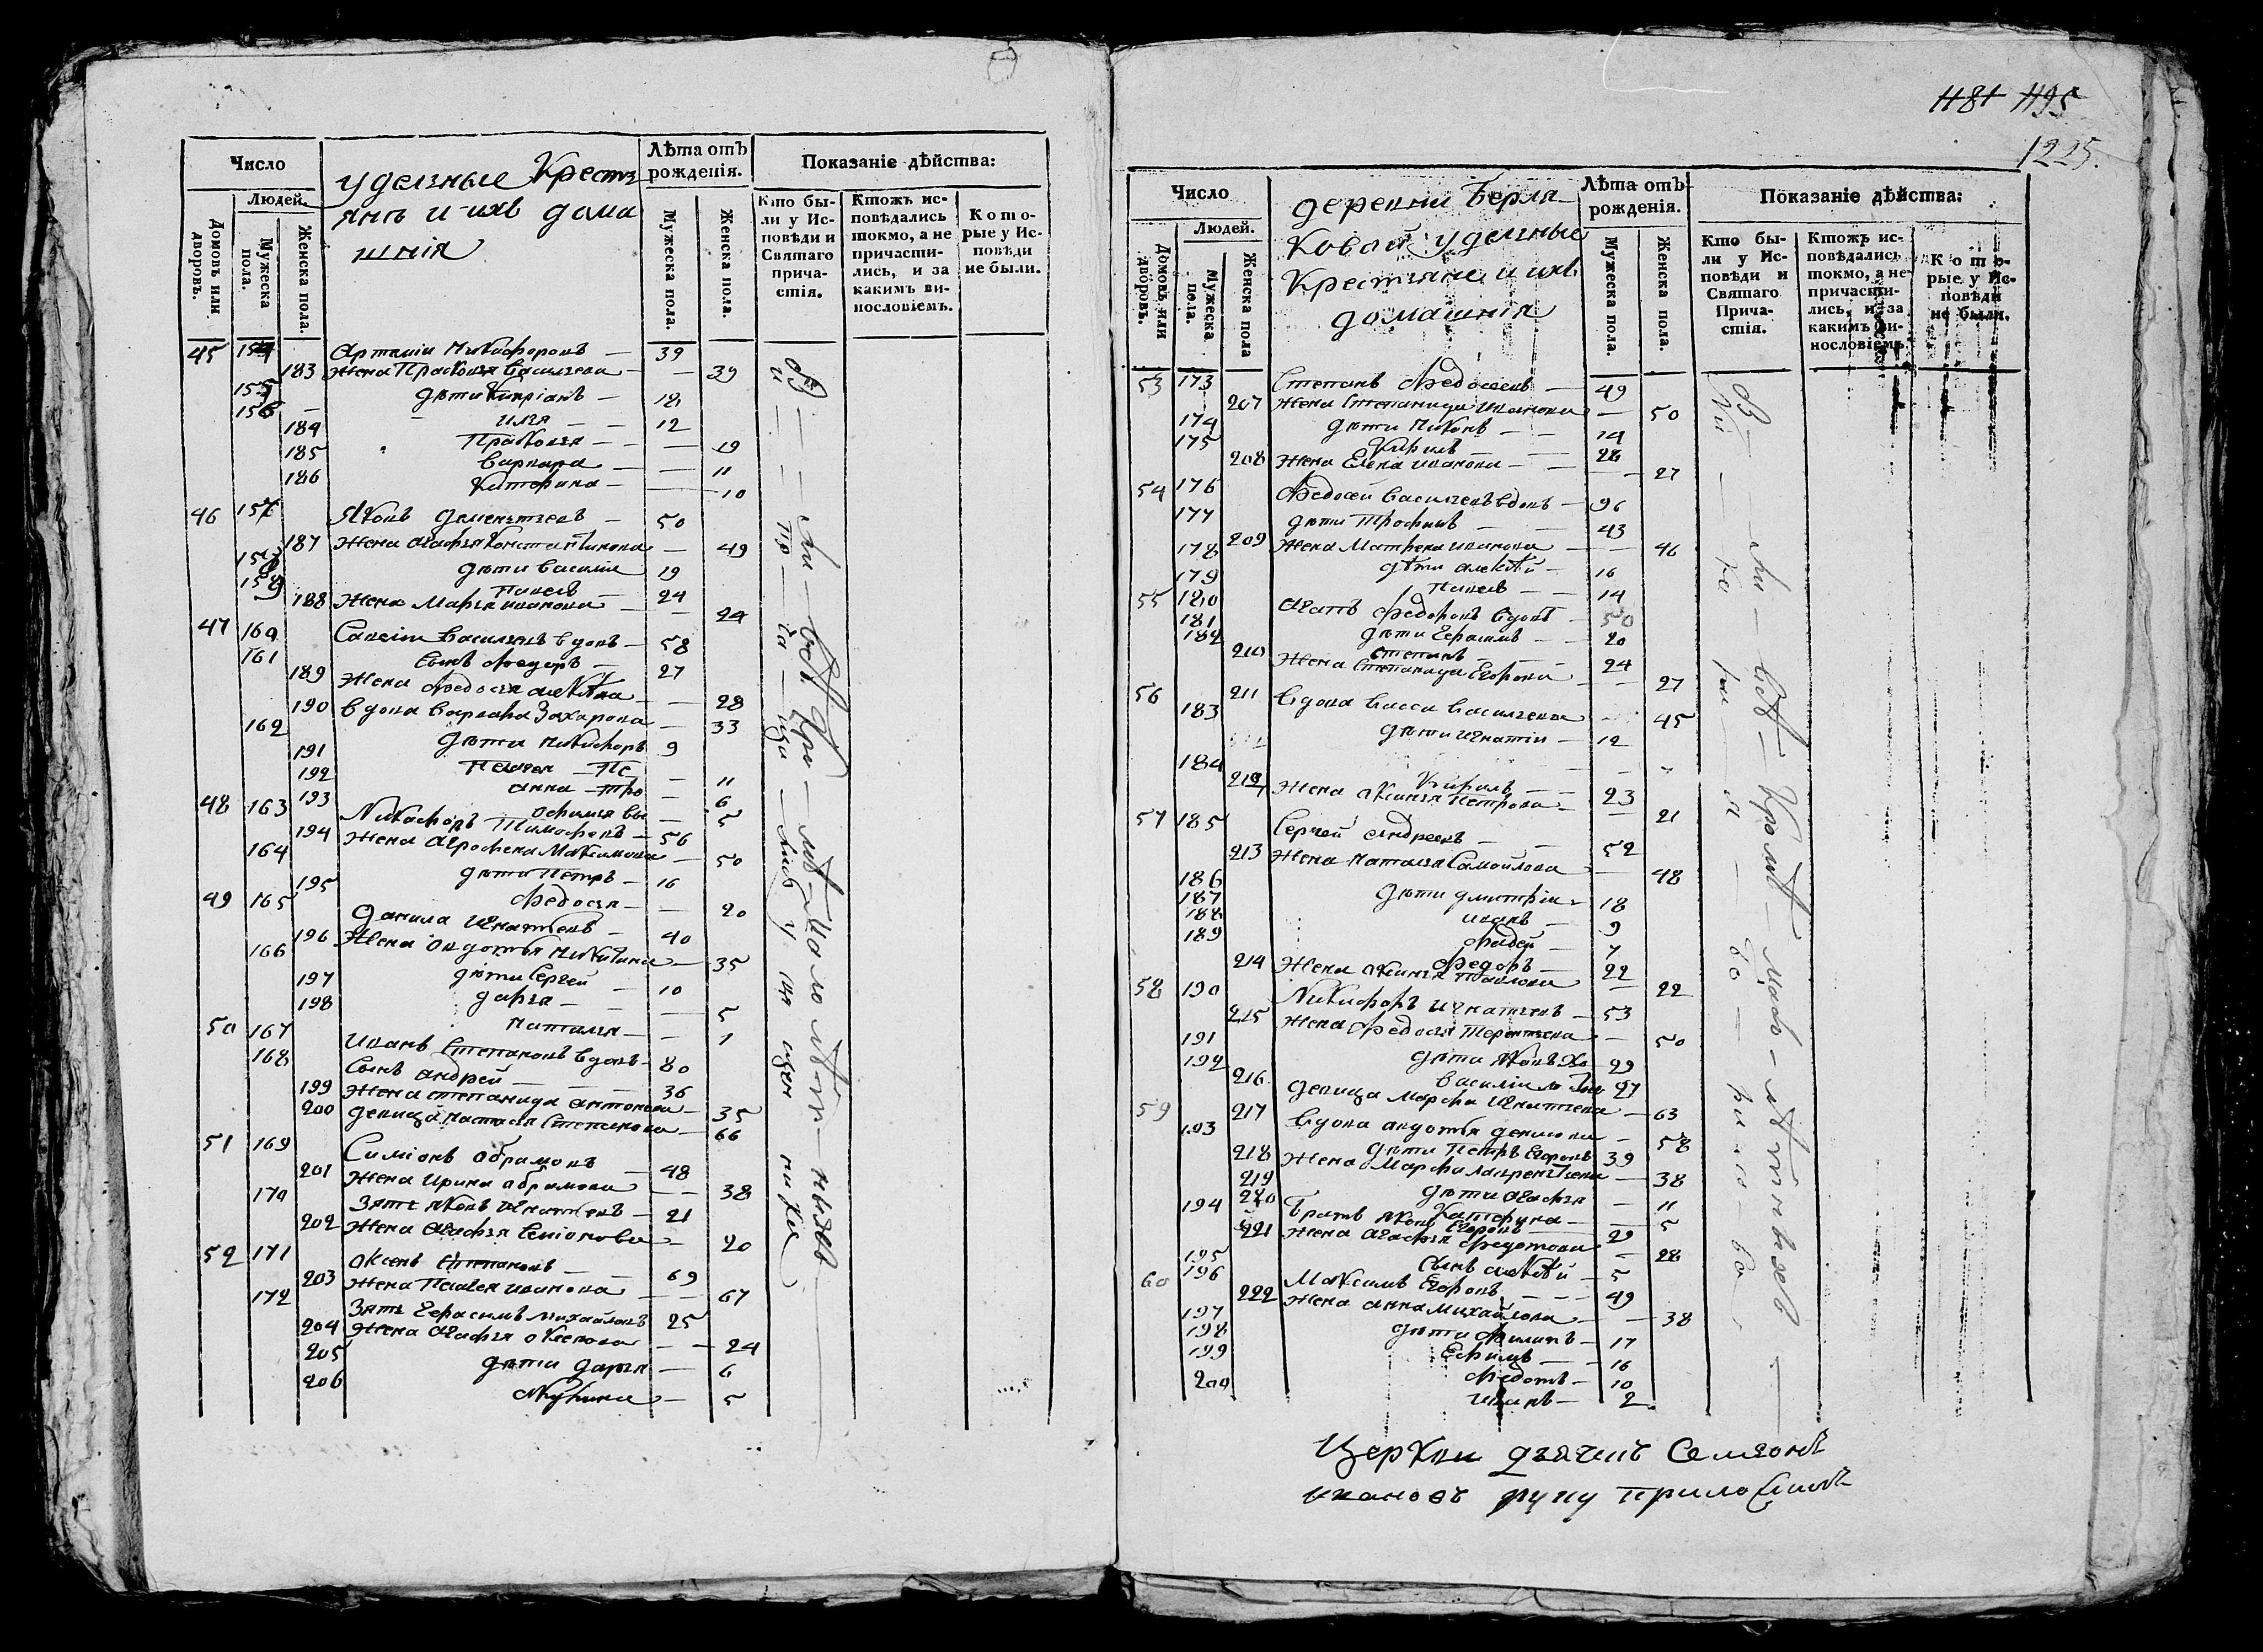 1181 1195
1225.
Число
удельные Кресть
янъ и ихъ дома
шнія
Лѣта отъ рожденія.
Показаніе дѣйства:
Людей.
Домовъ или дворовъ.
Мужеска пола.
Женска пола.
Мужеска пола.
Женска пола.
Кто бы-
ли у Ис-
повѣди и
Святаго
прича-
стія.
Ктожъ ис-
повѣдались
токмо, а не
причасти-
лись, и за
какимъ ви-
нословіемъ.
Кото-
рые у Ис-
повѣди
не были.
45 154 Артаміи Никифоровъ — 39
183 Жена Прасковья Васильева — 39
155 дѣти Киприанъ — 18
156 илья — 12
184 Прасковья — 19
185 Варвара — 11
186 Катерина — 10
46 157 Яковъ Дементьевъ — 50
187 Жена Агафья Константинова — 49
158 дѣти Василіи 19
159 Павелъ — 24
188 Жена Марья иванова — 24
47 160 Савеліи Васильевъ вдовъ — 58
161 Сынъ Федоръ — 27
189 Жена Федосья — 28
190 вдова Варвара Захарова — 33
162 дѣти Никифоръ 9
191 Пелагея — 11
192 анна — 6
193 офимья — 5
48 163 Никифоръ Тимофеевъ — 56
194 Жена Аграфена Максимова — 50
164 дѣти Петръ — 16
195 Федосья — 20
49 165 Данила Игнатьевъ — 40
196 Жена Авдотья Никитина — 35
166 дѣти Сергей — 10
197 дарья — 5
198 Наталья — 1
50 167 иванъ Степановъ вдовъ — 80
168 Сынъ андрей — 36
199 Жена степанида антонова — 35
200 девица настасья Степанова — 66
51 169 Симіонъ абрамовъ — 48
201 Жена Ирина абрамова — 38
170 Зять Яковъ Игнатьевъ — 21
202 Жена Агафья Семіонова — 20
52 171 Аксенъ Степановъ — 69
203 Жена Пелагея иванова — 67
172 Зять Герасимъ Михайловъ 25
204 Жена Агафья — 24
205 дѣти дарья — 6
206 Акулина — 5
Число
деревни Берля-
ковой удельные
Крестьяне и ихъ
домашнія
Лѣта отъ рожденія.
Показаніе дѣйства:
Людей.
Домовъ или дворовъ.
Мужеска пола.
Женска пола
Мужеска пола.
Женска пола.
Кто бы-
ли у Ис-
повѣди и
Святаго
Прича-
стія.
Ктожъ ис-
повѣдались
токмо, а не
причасти-
лись, и за
какимъ ви-
нословіемъ.
Кото-
рые у Ис-
повѣди
не были.
53 173 Степанъ Федосеевъ — 49
207 Жена Степанида иванова — 50
174 дѣти Никонъ — 14
175 Кирилъ — 28
208 Жена Елена иванова — 27
54 176 Федосеи Васильевъ вдовъ — 96
177 дѣти Трофимъ — 43
209 Жена Матрена иванова — 46
178 дѣти алексѣй — 16
179 Павелъ — 14
55 180 Агапъ Федоровъ вдовъ — 50
181 дѣти Герасимъ — 20
182 Степанъ — 24
210 Жена Степанида Егорова — 27
56 211 вдова Васса Васильева 45
183 дѣти игнатіи — 12
184 Кирилъ — 23
212 Жена Аксинья Петрова — 21
57 185 Сергей Андреевъ — 52
213 Жена Наталья Самойлова — 48
186 дѣти дмитріи — 18
187 иванъ — 9
188 Фадей — 7
189 Федоръ — 22
214 Жена Аксинья Павлова — 22
58 190 Никифоръ игнатьевъ — 53
215 Жена Федосья Терентьева — 50
191 дѣти Яковъ 29
192 Василіи 27
216 девица Марфа Игнатьева — 63
59 217 вдова авдотья денисова — 58
193 дѣти Петръ Егоровъ 39
218 Жена Марфа Лаврентьева — 38
219 дѣти Агафья — 11
220 Катерина — 5
194 Братъ Яковъ Егоровъ 29
221 Жена Агафья Федотова — 28
195 Сынъ алексѣй — 5
60 196 Максимъ Егоровъ — 49
222 Жена анна Михайлова — 38
197 дѣти Филипъ — 17
198 Ефимъ — 16
199 Федотъ — 10
200 иванъ — 2
Церкви дьячикъ Семьонъ
ивановъ руку приложилъ